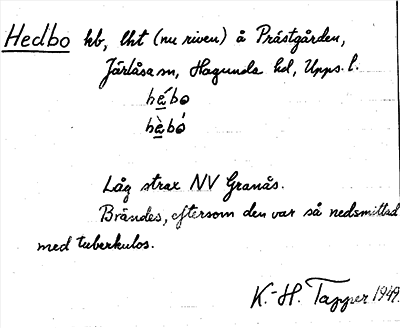 Hedbo kb, lht (nu riven) å Prästgården,
Järlåsa sn, Hagunda hd, Upps. l.
hébo
hèbó
Låg strax NV Granås.
Brändes, eftersom den var så nedsmittad
med tuberkulos.
K.-H. Tapper 1949.